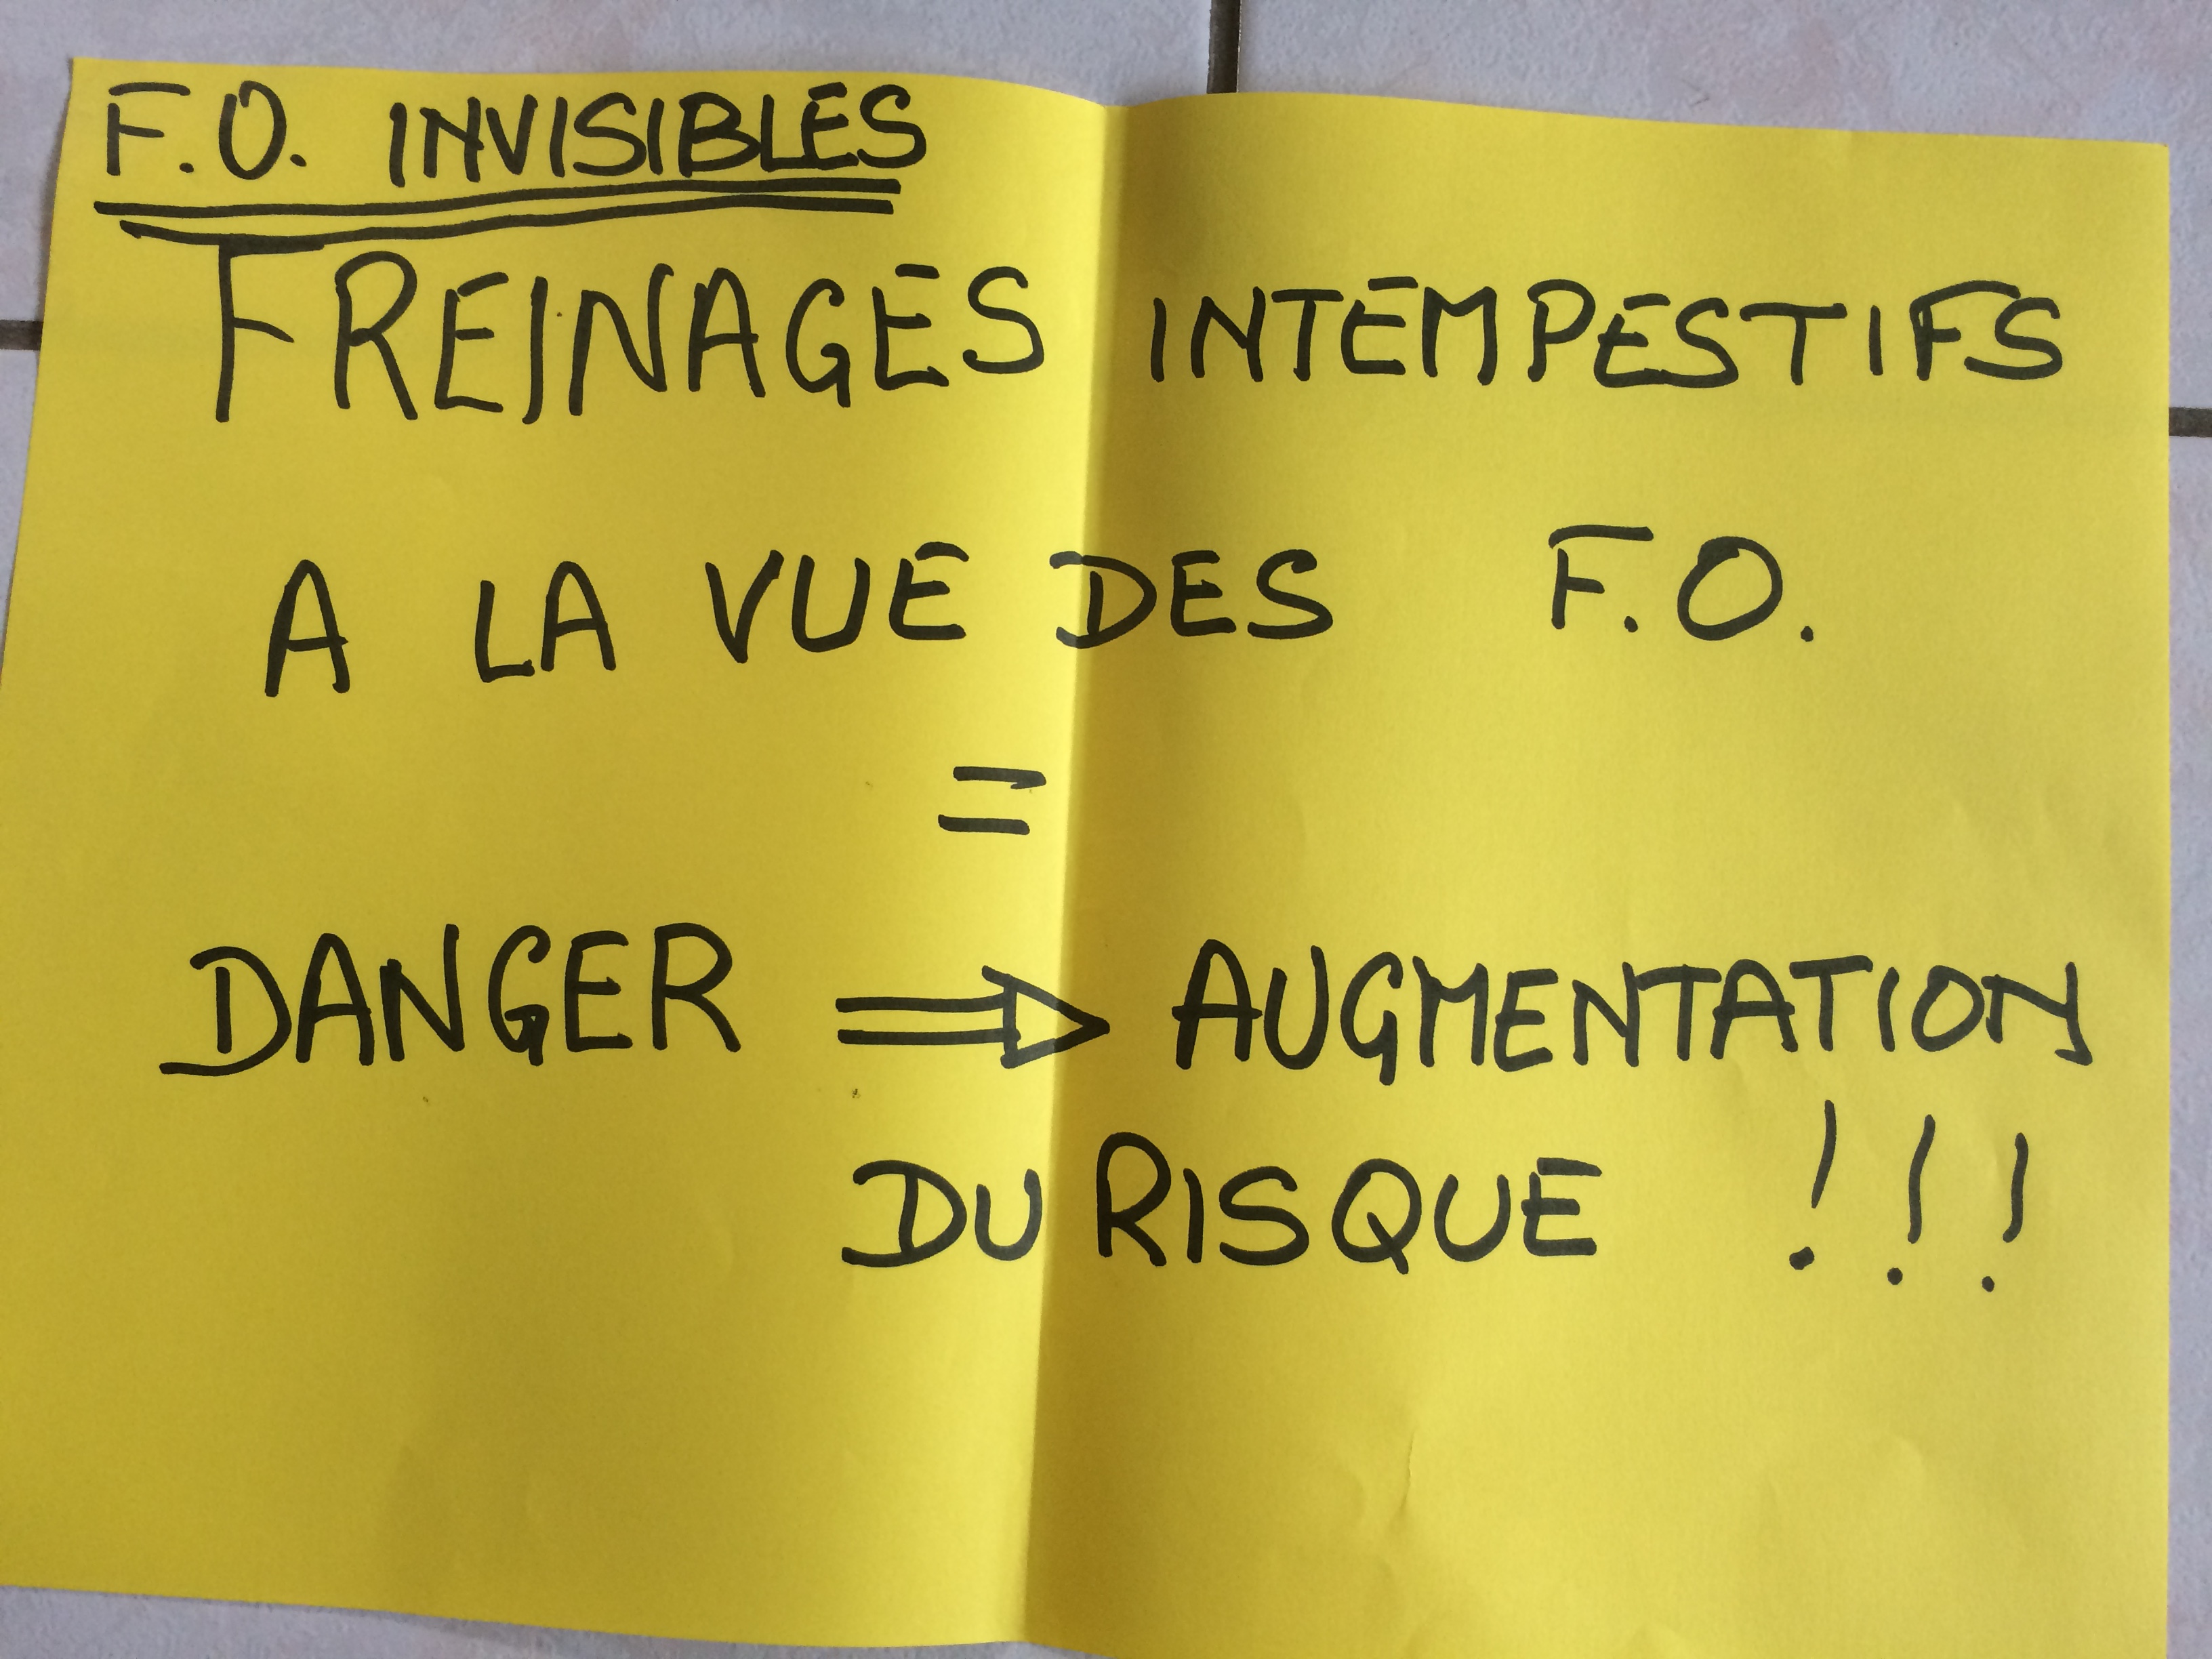 F.O. INVISIBLES
FREINAGES INTEMPESTIFS
A LA VUE DES F.O.
=
DANGER ⇒ AUGMENTATION
DU RISQUE !!!